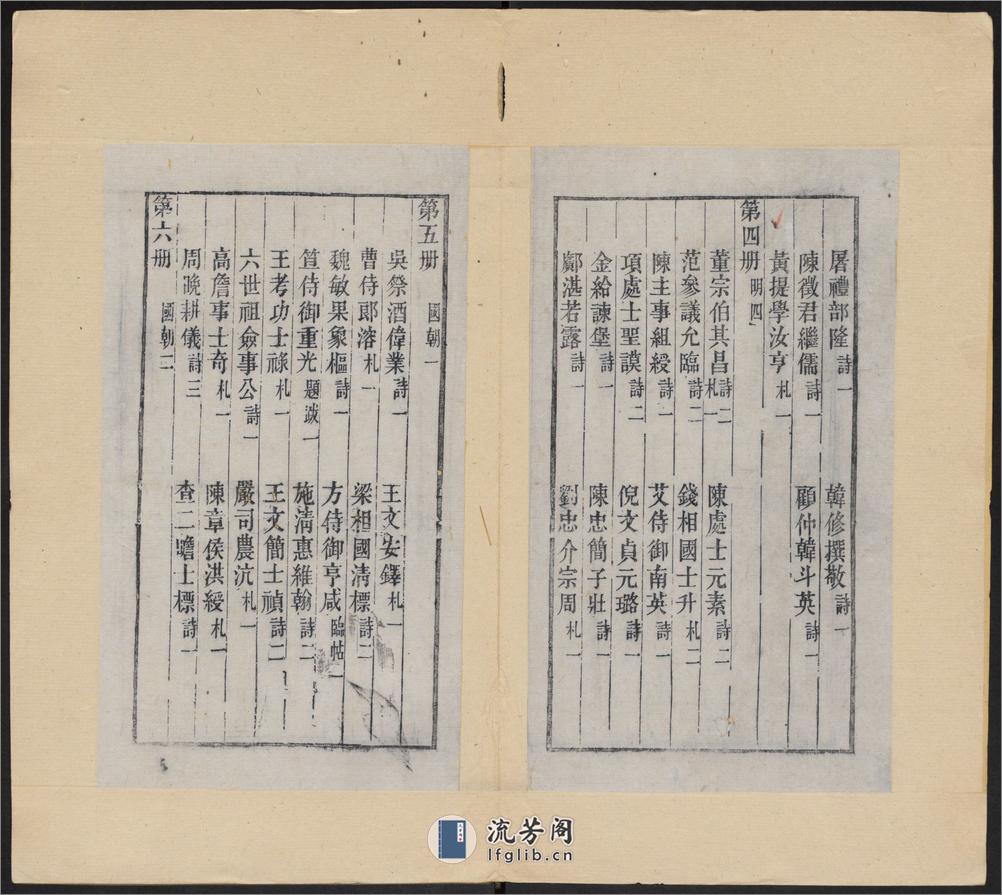 屠禮部隆 詩一 韓修撰敬 詩一
陳徵君繼儒 詩一 顧仲韓斗英 詩一
黃提學汝亨 札一
第四册 明四
董宗伯其昌 詩二札一 陳處士元素 詩二
范參議允臨 詩二 錢相國士升 札二
陳主事組綬 詩一 艾侍御南英 詩一
項處士聖謨 詩二 倪文貞元璐 詩一
金給諫堡 詩一 陳忠簡子壯 詩一
鄺湛若露 詩一 劉忠介宗周 札一
第五册 國朝一
吳祭酒偉業 詩一 王文安鐸 札一
曹侍郎溶 札一 梁相國清標 詩二
魏敏果象樞 詩一 方侍御亨咸 臨帖一
笪侍御重光 題跋一 施清惠維翰 詩二
王考功士祿 札一 王文簡士禎 詩二
六世祖僉事公 詩一 嚴司農沆 札一
高詹事士奇 札一 陳章侯洪綬 札一
周晚耕儀 詩三 查二瞻士標 詩一
第六册 國朝二
流芳阁
lfglib.cn